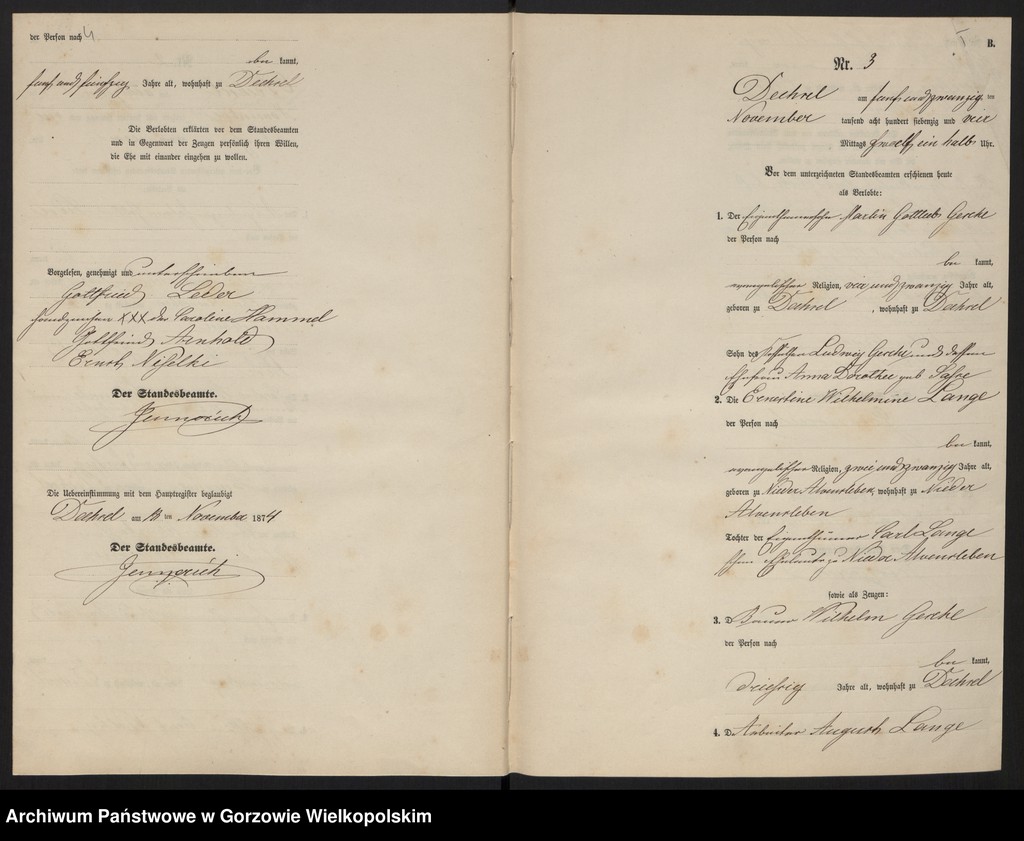 der Person nach 4
be kannt,
fünf und fünfzig Jahre alt, wohnhaft zu Dechsel
Die Verlobten erklärten vor dem Standesbeamten
und in Gegenwart der Zeugen persönlich ihren Willen,
die Ehe mit einander eingehen zu wollen.
Vorgelesen, genehmigt und unterschrieben
Gottfried Leder
Handzeichen XXX der Caroline Hammel
Gottfried Arnhold
Ernst
Der Standesbeamte.
Die Uebereinstimmung mit dem Hauptregister beglaubigt
Dechsel am ten November 1874
Der Standesbeamte.
B.
Nr. 3
Dechsel am fünf und zwanzig ten
November tausend acht hundert siebenzig und vier
Mittags zwölf ein halb Uhr.
Vor dem unterzeichneten Standesbeamten erschienen heute
als Verlobte:
1. Der Eigenthümersohn Martin Gottlieb Gercke
der Person nach
be kannt,
evangelischer Religion, vier und zwanzig Jahre alt,
geboren zu Dechsel, wohnhaft zu Dechsel
Sohn des Ludwig Gercke und dessen
Ehefrau Anna Dorothee geb
2. Die Ernestine Wilhelmine Lange
der Person nach
be kannt,
evangelischer Religion, zwei und zwanzig Jahre alt,
geboren zu Nieder Alvensleben, wohnhaft zu Nieder
Alvensleben
Tochter der Eigenthümer Carl Lange
schen Eheleute zu Nieder Alvensleben
sowie als Zeugen:
3. D Bauer Wilhelm Gercke
der Person nach
be kannt,
dreißig Jahre alt, wohnhaft zu Dechsel
4. D Arbeiter August Lange
Archiwum Państwowe w Gorzowie Wielkopolskim